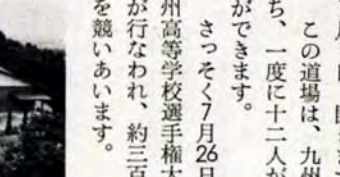 この道場は、九州
ち、一度に十二人が
ができます。
さっそく7月26日
州高等学校選手権大
が行なわれ、約三百
を競いあいます。